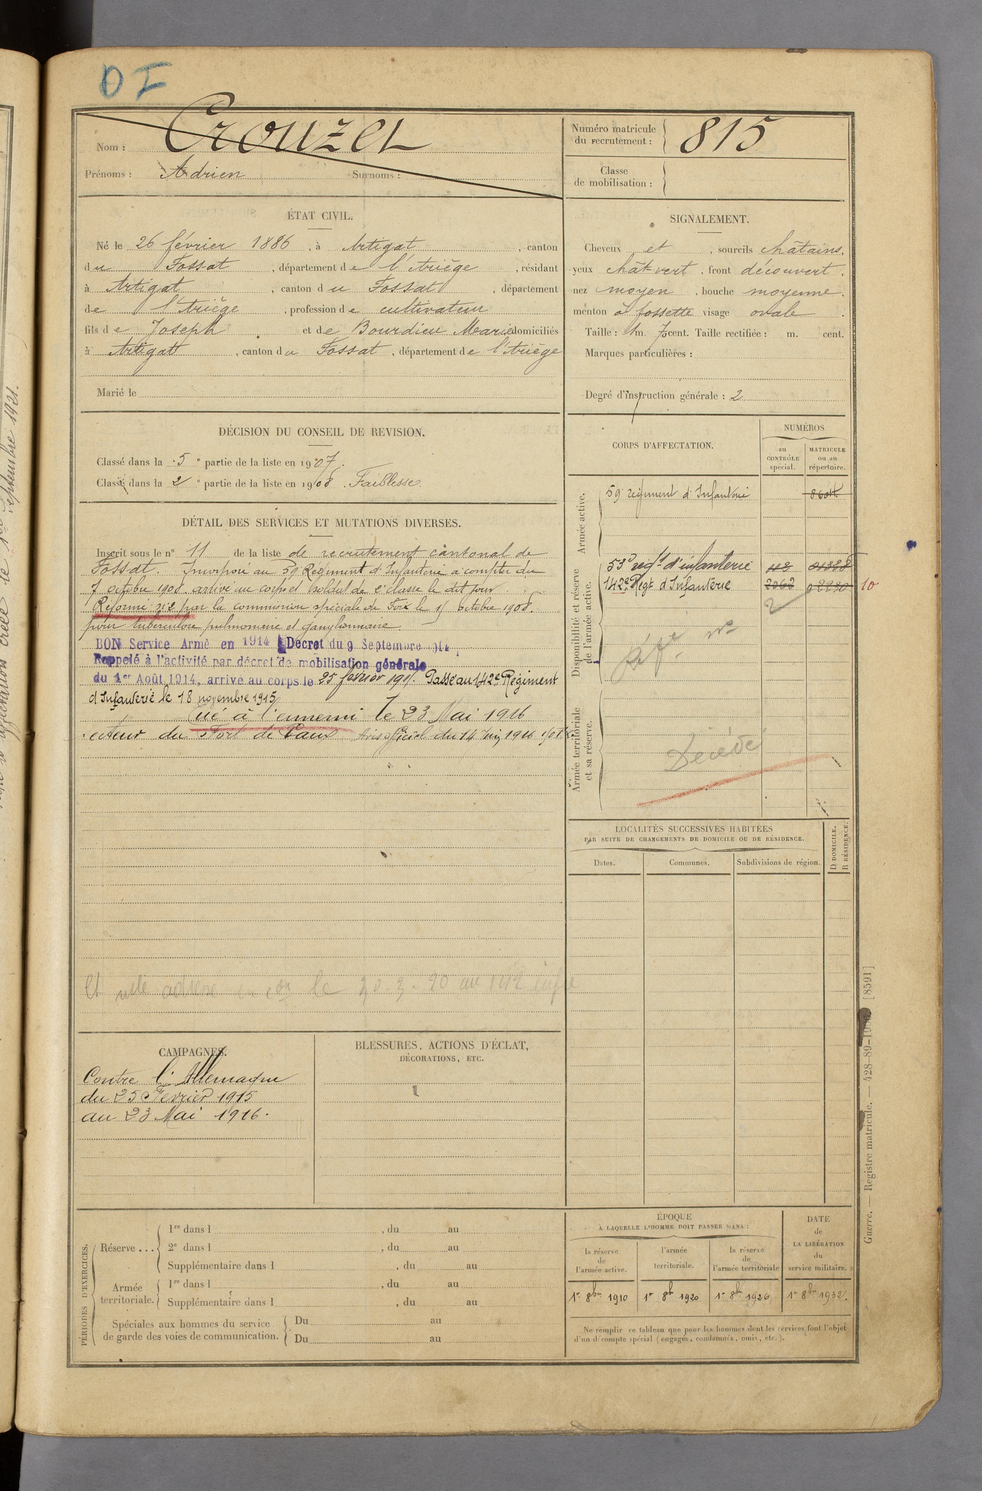 DI
Nom : Crouzet
Prénoms : Adrien Surnoms :
Numéro matricule du recrutement : 815
Classe de mobilisation :
ÉTAT CIVIL.
Né le 26 février 1886, à Artigat, canton
du Fossat, département de l'Ariège, résidant
à Artigat, canton du Fossat, département
de l'Ariège, profession de cultivateur
fils de Joseph et de Bourdieu Marie domiciliés
à Artigat, canton du Fossat, département de l'Ariège
Marié le
SIGNALEMENT.
Cheveux et sourcils châtains,
yeux chât vert, front découvert,
nez moyen, bouche moyenne,
menton à fossette visage ovale.
Taille : 1m. cent. Taille rectifiée : m. cent.
Marques particulières :
Degré d'instruction générale : 2
DÉCISION DU CONSEIL DE REVISION.
Classé dans la 5e partie de la liste en 1907.
Classé dans la 2e partie de la liste en 1908. Faiblesse
DÉTAIL DES SERVICES ET MUTATIONS DIVERSES.
Inscrit sous le n° 11 de la liste de recrutement cantonal de
Fossat. Incorporé au 59 Régiment d'Infanterie à compter du
7 octobre 1908. arrivé au corps et soldat de 2e classe le dit jour
Réformé n° 2 par la commission spéciale de Foix le octobre 1908
pour tuberculose pulmonaire et ganglionnaire.
BON Service Armé en 1914 Décret du 9 Septembre 1914
Rappelé à l'activité par décret de mobilisation générale
du 1er Août 1914, arrivé au corps le 25 février 1915. Passé au 142e Régiment
d'Infanterie le 18 novembre 1915
Tué à l'ennemi le 23 Mai 1916
secteur du Fort de Vaux Avis officiel du 14 juin 1916
le 20.3.20 au 142 inf
CORPS D'AFFECTATION.
NUMÉROS
au CONTRÔLE spécial.
MATRICULE ou au répertoire.
Armée active.
59 régiment d'Infanterie
Disponibilité et réserve de l'armée active.
59e Regt d'infanterie
142e Regt d'Infanterie 2062
10
2
Armée territoriale et sa réserve.
Décédé
LOCALITÉS SUCCESSIVES HABITÉES
PAR SUITE DE CHANGEMENTS DE DOMICILE OU DE RÉSIDENCE.
Dates. Communes. Subdivisions de région. D DOMICILE. R RÉSIDENCE.
CAMPAGNES.
Contre l'Allemagne
du 25 Février 1915
au 23 Mai 1916.
BLESSURES, ACTIONS D'ÉCLAT,
DÉCORATIONS, ETC.
PÉRIODES D'EXERCICES.
Réserve...
1re dans l , du au
2e dans l , du au
Supplémentaire dans l , du au
Armée territoriale.
1re dans l , du au
Supplémentaire dans l , du au
Spéciales aux hommes du service
de garde des voies de communication.
Du au
Du au
ÉPOQUE
À LAQUELLE L'HOMME DOIT PASSER DANS :
la réserve de l'armée active.
l'armée territoriale.
la réserve de l'armée territoriale
DATE de LA LIBÉRATION du service militaire.
1er 8bre 1910 1er 8bre 1920 1er 8bre 1926 1er 8bre 1932.
Ne remplir ce tableau que pour les hommes dont les services font l'objet
d'un décompte spécial (engagés, condamnés, omis, etc.).
Guerre. — Registre matricule. — 428-89- [8591]
septembre 1921.